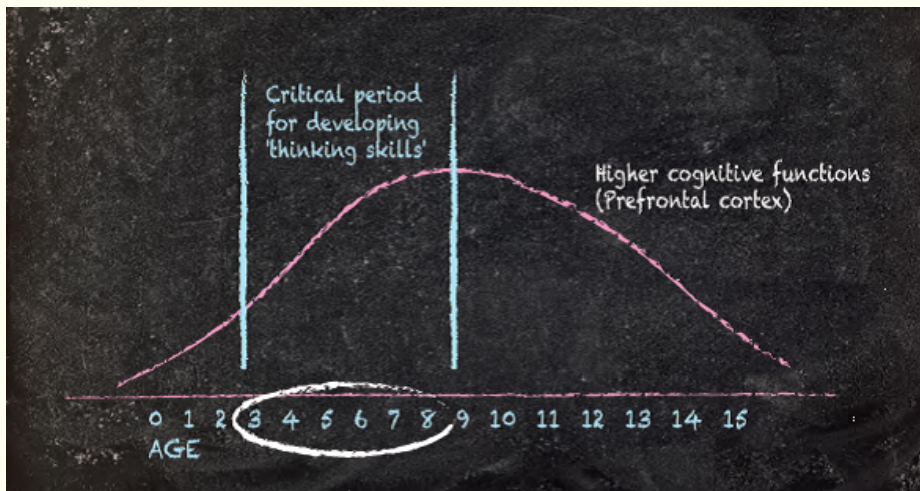 Critical period
for developing
'thinking skills'
Higher cognitive functions
(Prefrontal cortex)
0 1 2 3 4 5 6 7 8 9 10 11 12 13 14 15
AGE